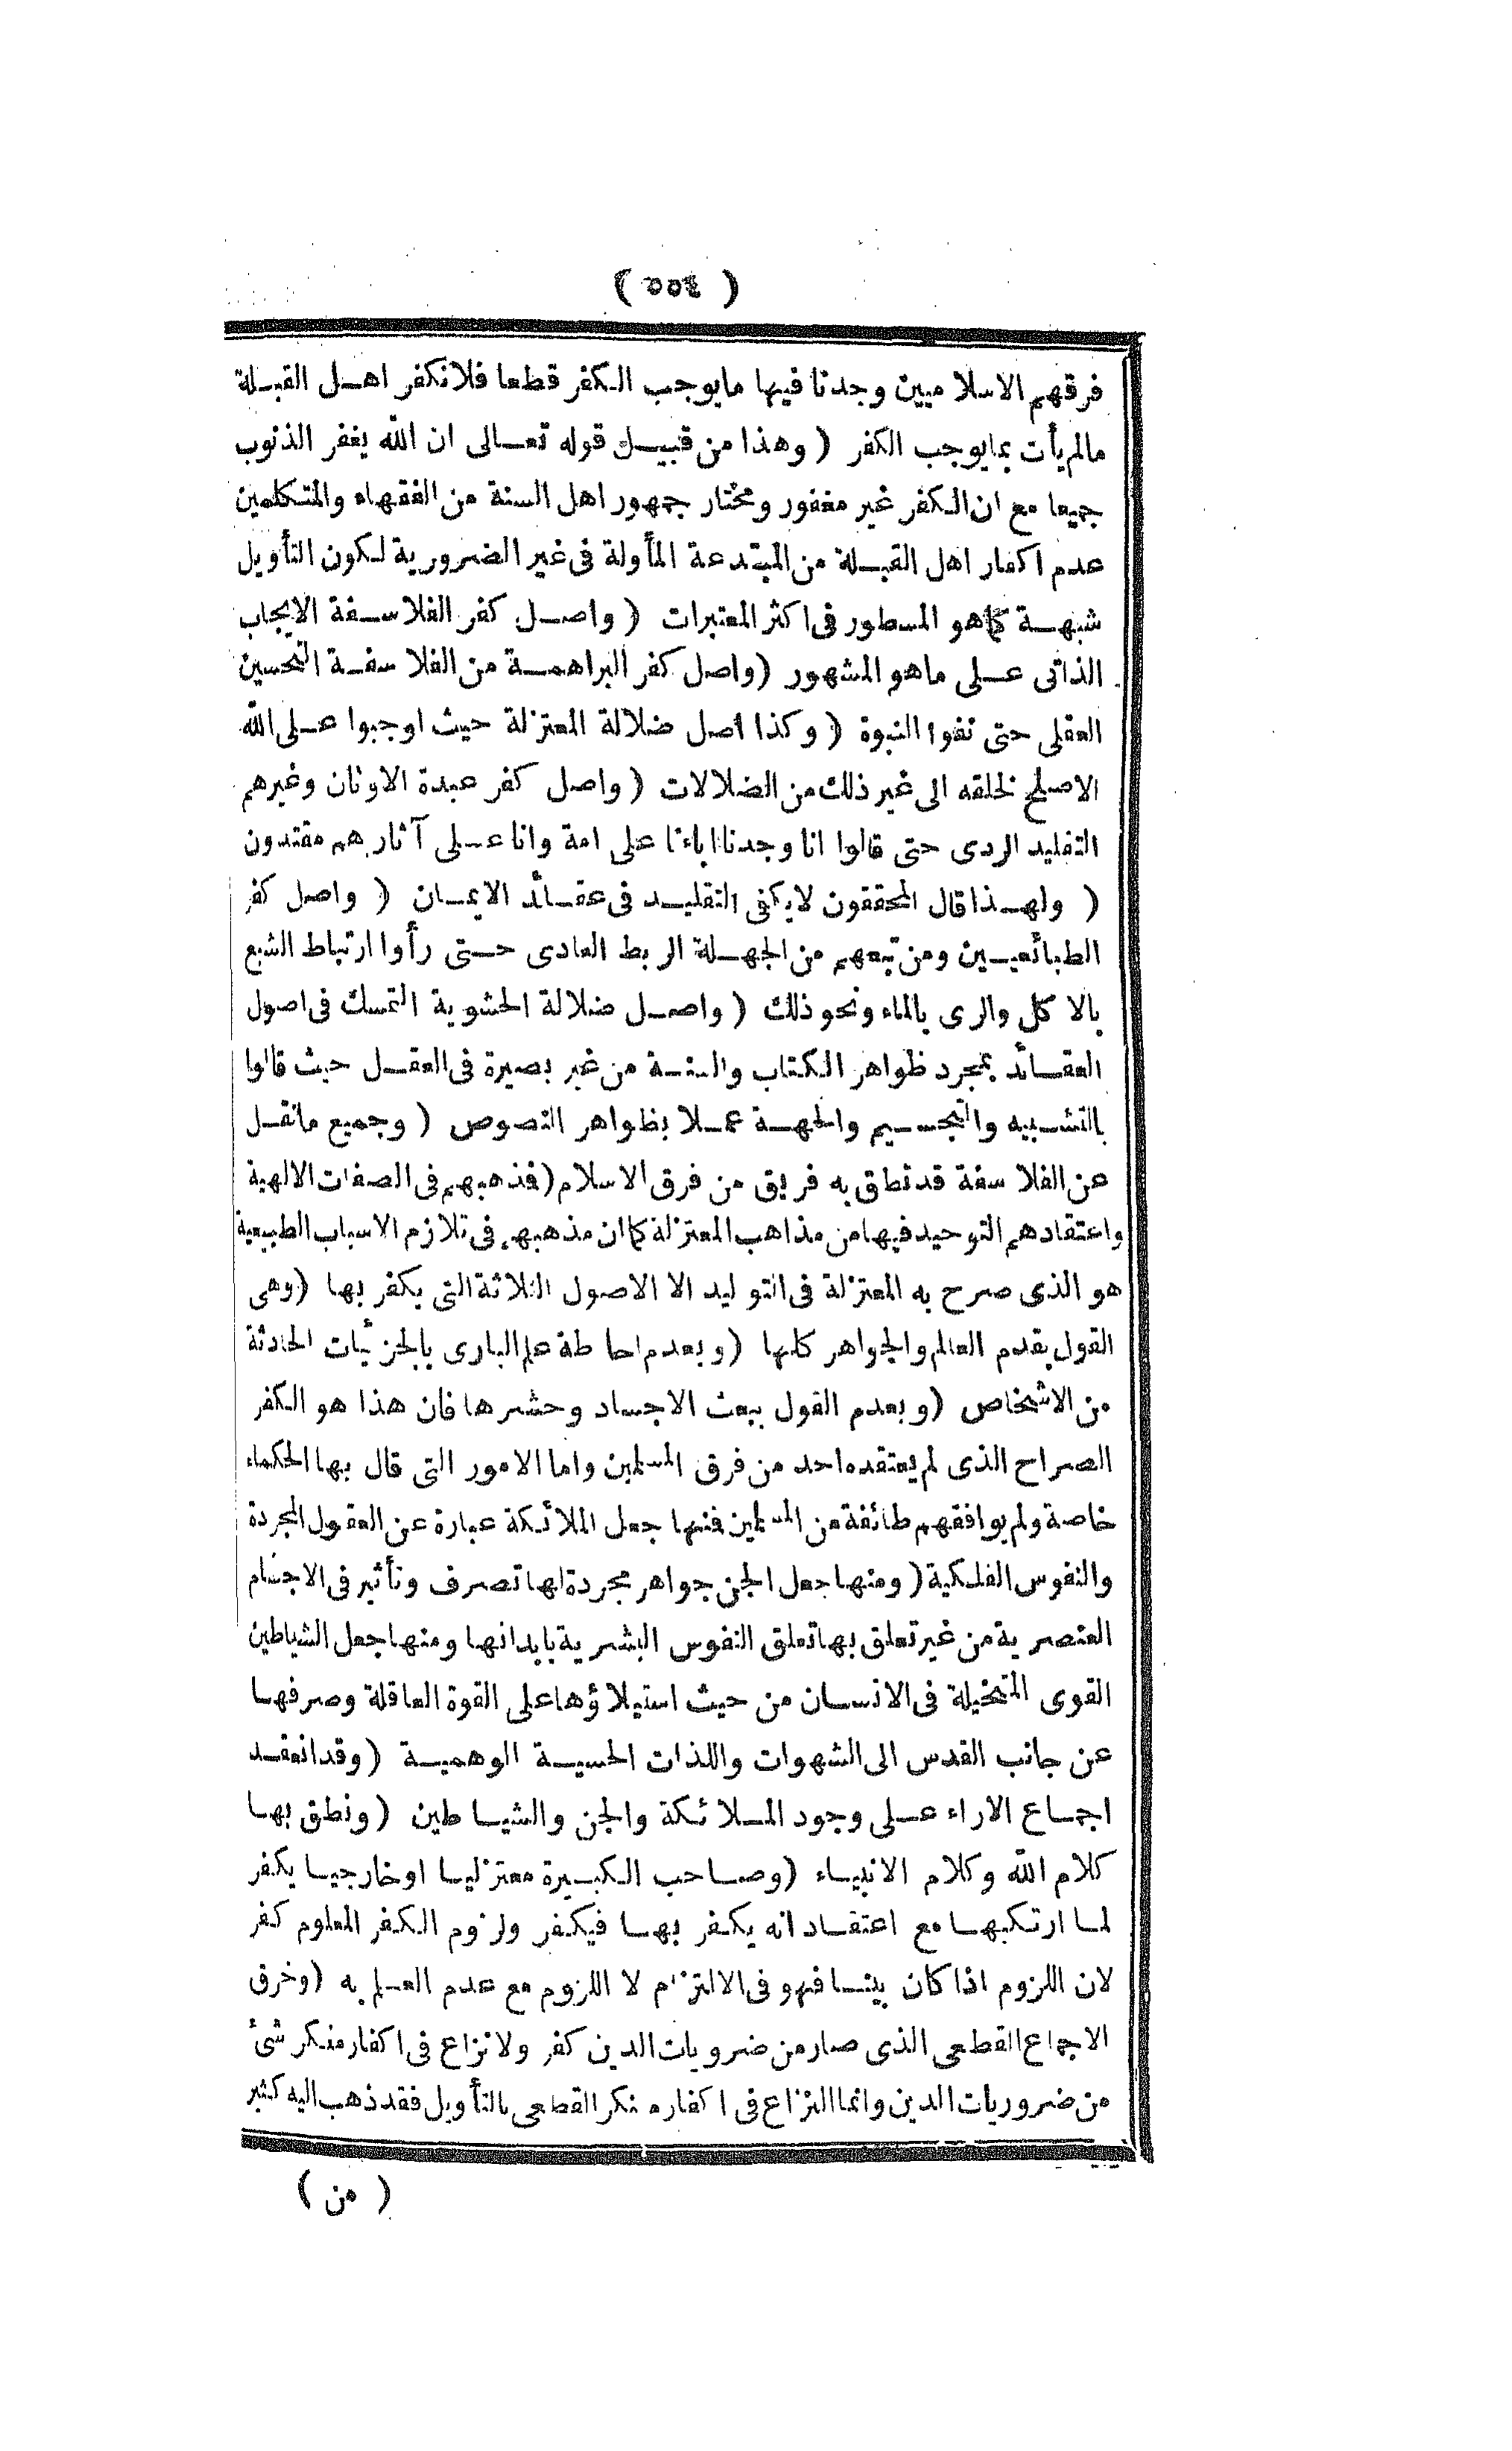 ( ٥٥٤ )
فرقهم الاسلاميين وجدنا فيها مايوجب الكفر قطعا فلانكفر اهل القبلة
مالم يأت بمايوجب الكفر ( وهذا من قبيل قوله تعالى ان الله يغفر الذنوب
جميعا مع ان الكفر غير مغفور ومختار جمهور اهل السنة من الفقهاء والمتكلمين
عدم اكفار اهل القبلة من المبتدعة المأولة فى غير الضرورية لكون التأويل
شبهة كماهو المسطور فى اكثر المعتبرات ( واصل كفر الفلاسفة الايجاب
الذاتى على ماهو المشهور ( واصل كفر البراهمة من الفلاسفة التحسين
العقلى حتى نفوا النبوة ( وكذا اصل ضلالة المعتزلة حيث اوجبوا على الله
الاصلح لخلقه الى غير ذلك من الضلالات ( واصل كفر عبدة الاوثان وغيرهم
التقليد الردى حتى قالوا انا وجدنا اباءنا على امة وانا على آثارهم مقتدون
( ولهذا قال المحققون لايكفى التقليد فى عقائد الايمان ( واصل كفر
الطبائعيين ومن تبعهم من الجهلة الربط العادى حتى رأوا ارتباط الشبع
بالاكل والرى بالماء ونحو ذلك ( واصل ضلالة الحشوية التمسك فى اصول
العقائد بمجرد ظواهر الكتاب والسنة من غير بصيرة فى العقل حيث قالوا
بالتشبيه والتجسيم والجهة عملا بظواهر النصوص ( وجميع مانقل
عن الفلاسفة قد نطق به فريق من فرق الاسلام ( فذهبهم فى الصفات الالهية
واعتقادهم التوحيد فيها من مذاهب المعتزلة كما ان مذهبهم فى تلازم الاسباب الطبيعية
هو الذى صرح به المعتزلة فى التوليد الا الاصول الثلاثة التى يكفر بها ( وهى
القول بقدم العالم والجواهر كلها ( وبعدم احاطة علم البارى بالجزئيات الحادثة
من الاشخاص ( وبعدم القول ببعث الاجساد وحشرها فان هذا هو الكفر
الصراح الذى لم يعتقده احد من فرق المسلمين واما الامور التى قال بها الحكماء
خاصة ولم يوافقهم طائفة من المسلمين فمنها جعل الملائكة عبارة عن العقول المجردة
والنفوس الفلكية ( ومنها جعل الجن جواهر مجردة لها تصرف وتأثير فى الاجسام
العنصرية من غير تعلق بها تعلق النفوس البشرية بابدانها ومنها جعل الشياطين
القوى المتخيلة فى الانسان من حيث استيلاؤها على القوة العاقلة وصرفها
عن جانب القدس الى الشهوات واللذات الحسية الوهمية ( وقد انعقد
اجماع الاراء على وجود الملائكة والجن والشياطين ( ونطق بها
كلام الله وكلام الانبياء ( وصاحب الكبيرة معتزليا او خارجيا يكفر
لما ارتكبها مع اعتقاد انه يكفر بها فيكفر ولزوم الكفر المعلوم كفر
لان اللزوم اذا كان بينا فهو فى الالتزام لا اللزوم مع عدم العلم به ( وخرق
الاجماع القطعى الذى صار من ضرويات الدين كفر ولانزاع فى اكفار منكر شئ
من ضروريات الدين وانما النزاع فى اكفار منكر القطعى بالتأويل فقد ذهب اليه كثير
( من )